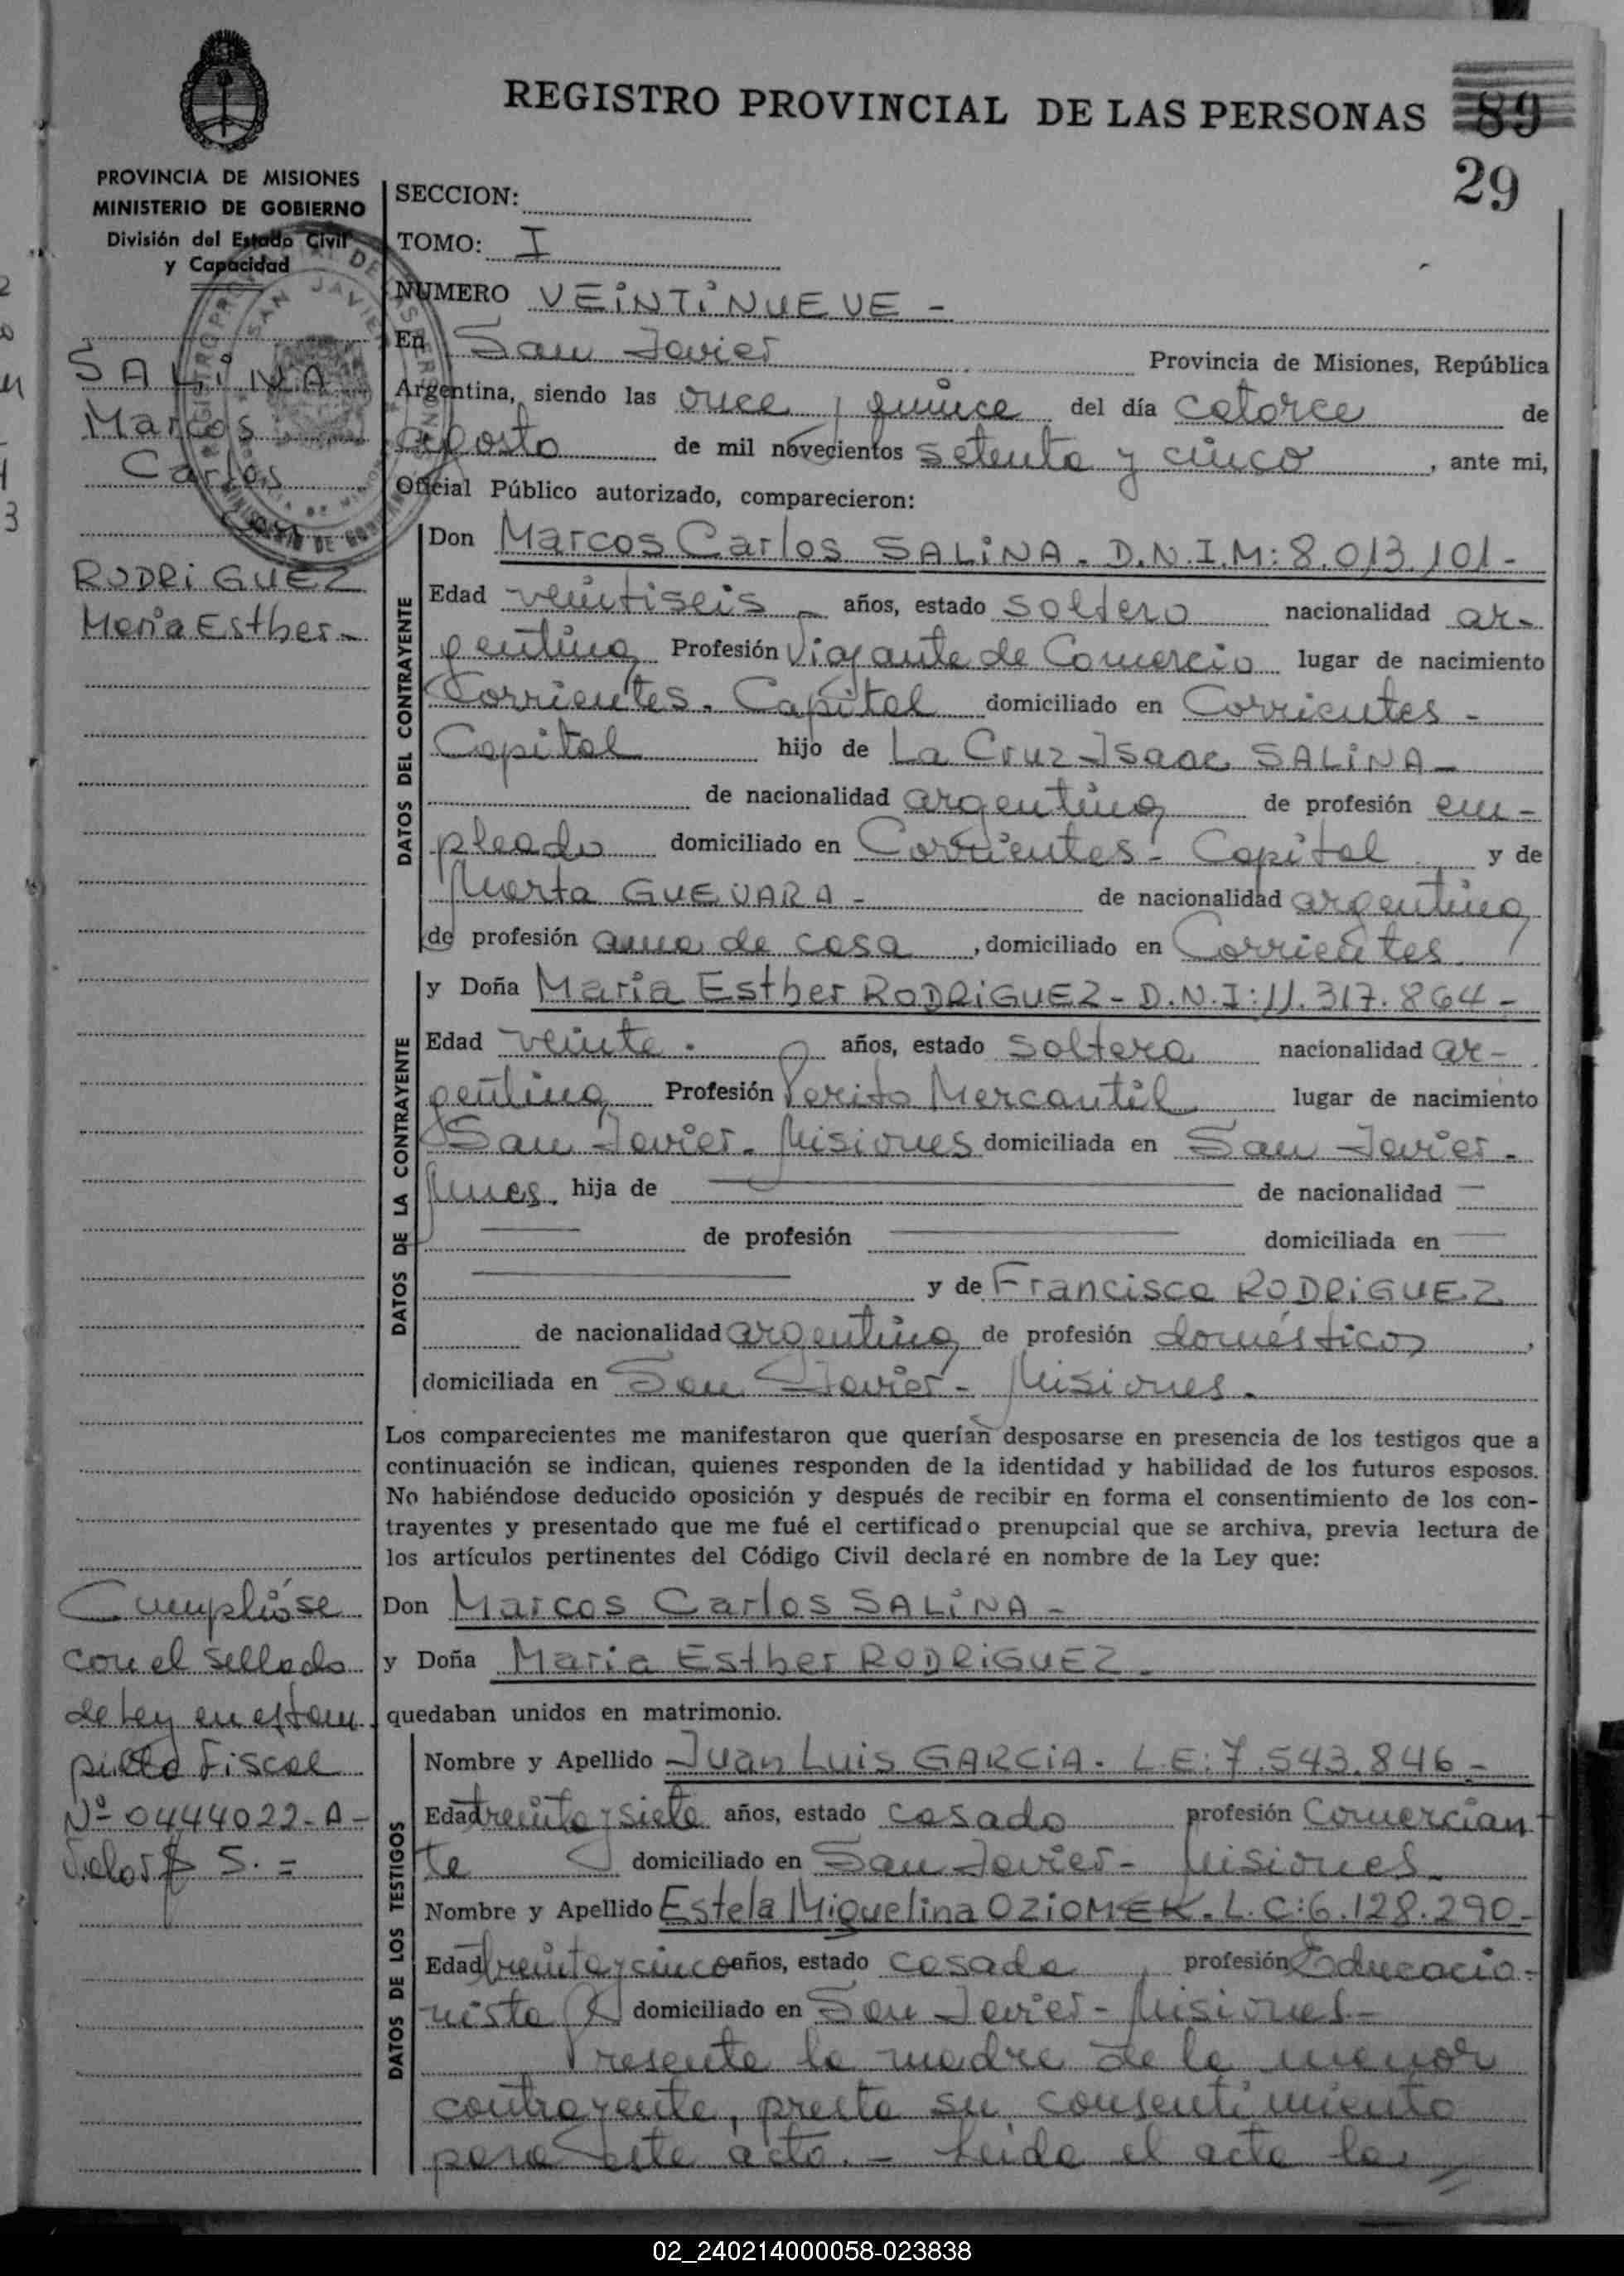 REGISTRO PROVINCIAL DE LAS PERSONAS 89
29
PROVINCIA DE MISIONES
MINISTERIO DE GOBIERNO
División del Estado Civil
y Capacidad
SALINA
Marcos
Carlos
con
RODRIGUEZ
María Esther -
Cumplióse
con el sellado
de Ley en estam
pilla Fiscal
Nº 0444022-A-
Valor $ 5. =
SECCION:
TOMO: I
NUMERO VEINTINUEVE -
En San Javier Provincia de Misiones, República
Argentina, siendo las once y quince del día catorce de
agosto de mil novecientos setenta y cinco, ante mi,
Oficial Público autorizado, comparecieron:
DATOS DEL CONTRAYENTE
Don Marcos Carlos SALINA - D.N.I.M: 8.013.101 -
Edad veintiseis - años, estado soltero nacionalidad ar-
gentina Profesión Viajante de Comercio lugar de nacimiento
Corrientes - Capital domiciliado en Corrientes -
Capital hijo de La Cruz Isaac SALINA -
de nacionalidad argentina de profesión em-
pleado domiciliado en Corrientes - Capital y de
Marta GUEVARA - de nacionalidad argentina
de profesión ama de casa, domiciliado en Corrientes
DATOS DE LA CONTRAYENTE
y Doña María Esther RODRIGUEZ - D.N.I: 11.317.864 -
Edad veinte - años, estado soltera nacionalidad ar-
gentina Profesión Perito Mercantil lugar de nacimiento
San Javier - Misiones domiciliada en San Javier -
Mnes hija de — de nacionalidad —
— de profesión — domiciliada en —
— y de Francisca RODRIGUEZ
de nacionalidad argentina de profesión doméstica,
domiciliada en San Javier - Misiones -
Los comparecientes me manifestaron que querían desposarse en presencia de los testigos que a
continuación se indican, quienes responden de la identidad y habilidad de los futuros esposos.
No habiéndose deducido oposición y después de recibir en forma el consentimiento de los con-
trayentes y presentado que me fué el certificado prenupcial que se archiva, previa lectura de
los artículos pertinentes del Código Civil declaré en nombre de la Ley que:
Don Marcos Carlos SALINA -
y Doña María Esther RODRIGUEZ -
quedaban unidos en matrimonio.
DATOS DE LOS TESTIGOS
Nombre y Apellido Juan Luis GARCIA - L.E: 7.543.846 -
Edad treinta y siete años, estado casado profesión Comercian
te domiciliado en San Javier - Misiones
Nombre y Apellido Estela Miguelina OZIOMEK - L.C: 6.128.290 -
Edad treinta y cinco años, estado casada, profesión Educacio-
nista domiciliado en San Javier - Misiones -
Presente la madre de la menor
contrayente, presta su consentimiento
para este acto. - Leida el acta la
02_240214000058-023838